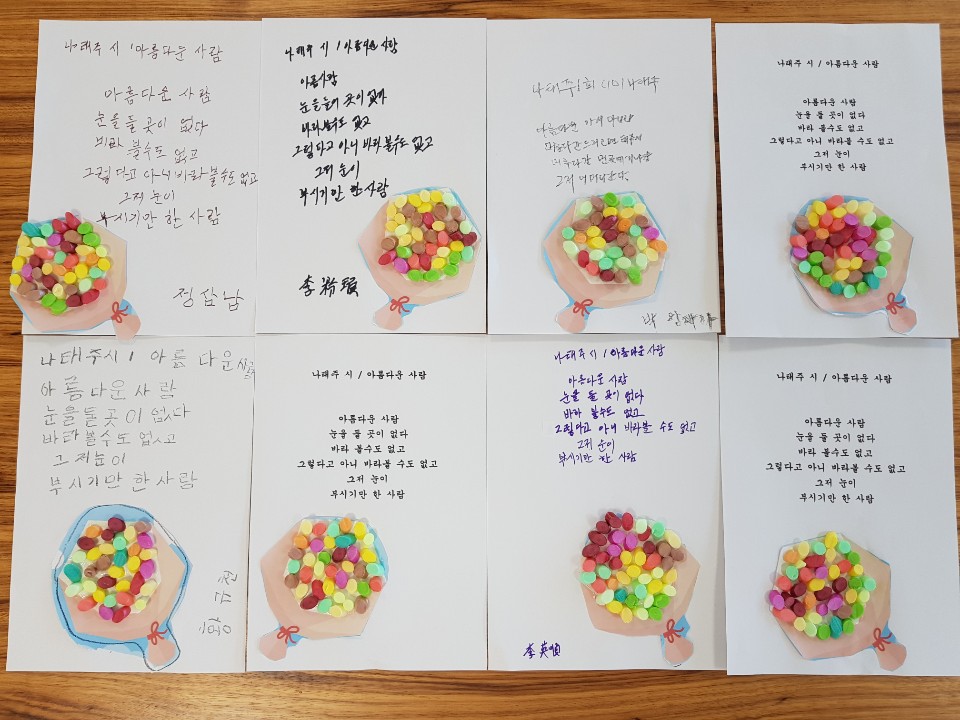 나태주 시 / 아름다운 사람
아름다운 사람
눈을 둘 곳이 없다
바라 볼수도 없고
그렇다고 아니 바라볼수도 없고
그저 눈이
부시기만 한 사람
정삼남
나태주 시 / 아름다운 사람
아름사람
눈을 둘 곳이 없다
바라 볼수도 없고
그렇다고 아니 바라 볼수도 없고
그저 눈이
부시기만 한 사람
李粉
나태주
그저
박
나태주 시 / 아름다운 사람
아름다운 사람
눈을 둘 곳이 없다
바라 볼 수도 없고
그렇다고 아니 바라볼 수도 없고
그저 눈이
부시기만 한 사람
나태주시 / 아름 다운 사람
아름다운사람
눈을둘곳이 없다
바라볼수도 없고
그저눈이
부시기만 한 사람
나태주 시 / 아름다운 사람
아름다운 사람
눈을 둘 곳이 없다
바라 볼 수도 없고
그렇다고 아니 바라볼 수도 없고
그저 눈이
부시기만 한 사람
나태주 시 / 아름다운 사람
아름다운 사람
눈을 둘 곳이 없다
바라 볼수도 없고
그렇다고 아니 바라볼 수도 없고
그저 눈이
부시기만 한 사람
李英順
나태주 시 / 아름다운 사람
아름다운 사람
눈을 둘 곳이 없다
바라 볼 수도 없고
그렇다고 아니 바라볼 수도 없고
그저 눈이
부시기만 한 사람